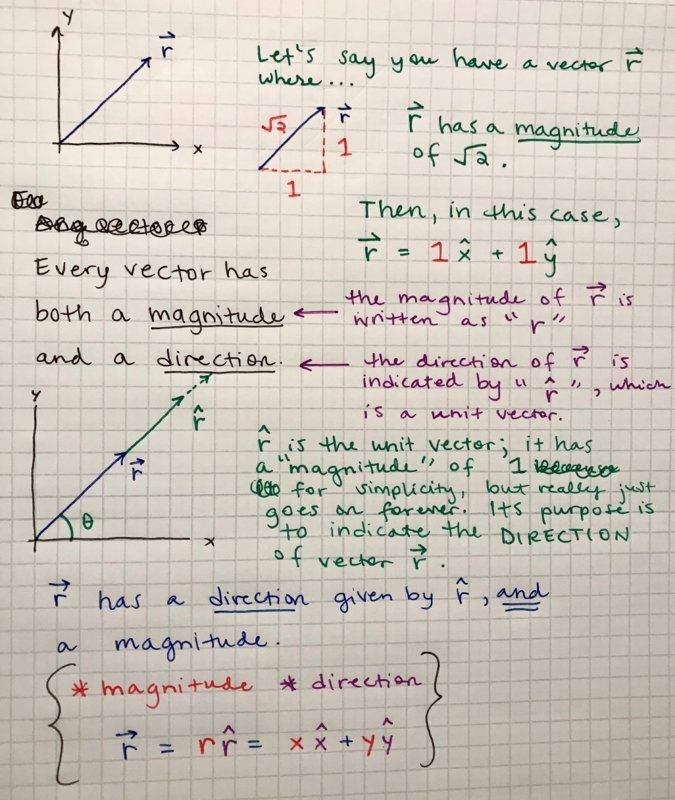 y
r⃗
x
Let's say you have a vector r⃗
where...
√2
r⃗
1
1
r⃗ has a magnitude
of √2.
Then, in this case,
r⃗ = 1x̂ + 1ŷ
Every vector has
both a magnitude
and a direction.
the magnitude of r⃗ is
written as "r"
the direction of r⃗ is
indicated by "r̂", which
is a unit vector.
y
r̂
r⃗
θ
x
r̂ is the unit vector; it has
a "magnitude" of 1
for simplicity, but really just
goes on forever. Its purpose is
to indicate the DIRECTION
of vector r⃗.
r⃗ has a direction given by r̂, and
a magnitude.
* magnitude * direction
r⃗ = rr̂ = xx̂ + yŷ